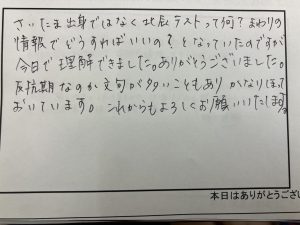 さいたま出身ではなく北辰テストって何？まわりの
情報でどうすればいいの？となっていたのですが
今日で理解できました。ありがとうございました。
反抗期なのか文句が多いこともありかなりほって
おいています。これからもよろしくお願いいたします。
本日はありがとうござい